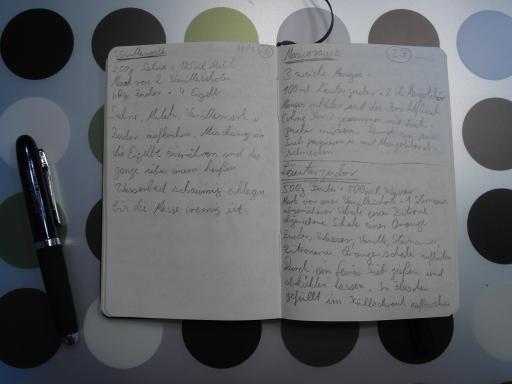 Vanillesauce
250g Sahne · 125ml Milch
Mark von 2 Vanilleschoten
60g Zucker · 4 Eigelb
Sahne, Milch, Vanillemark u
Zucker aufkochen. Mischung an
die Eigelb einrühren und das
ganze über einem heißen
Wasserbad schaumig schlagen
bis die Masse cremig ist.
Mangosauce
27
3 Mangos
100ml Läuterzucker · 2 cl Mangolikör
Mangos schälen und das Fruchtfleisch
(ohne Kern) zusammen mit
Zucker mixen. Durch ein
Sieb passieren u mit Mangolikör
Läuterzucker
500g Zucker · 500ml Wasser
Mark von einer Vanilleschote · 1 Sternanis
abgeriebene Schale einer Zitrone
abgeriebene Schale einer Orange
Zucker, Wasser, Vanille, Sternanis,
Zitronen u Orangenschale aufkochen
Durch ein feines Sieb gießen und
abkühlen lassen. In Flaschen
gefüllt im Kühlschrank aufbewahren